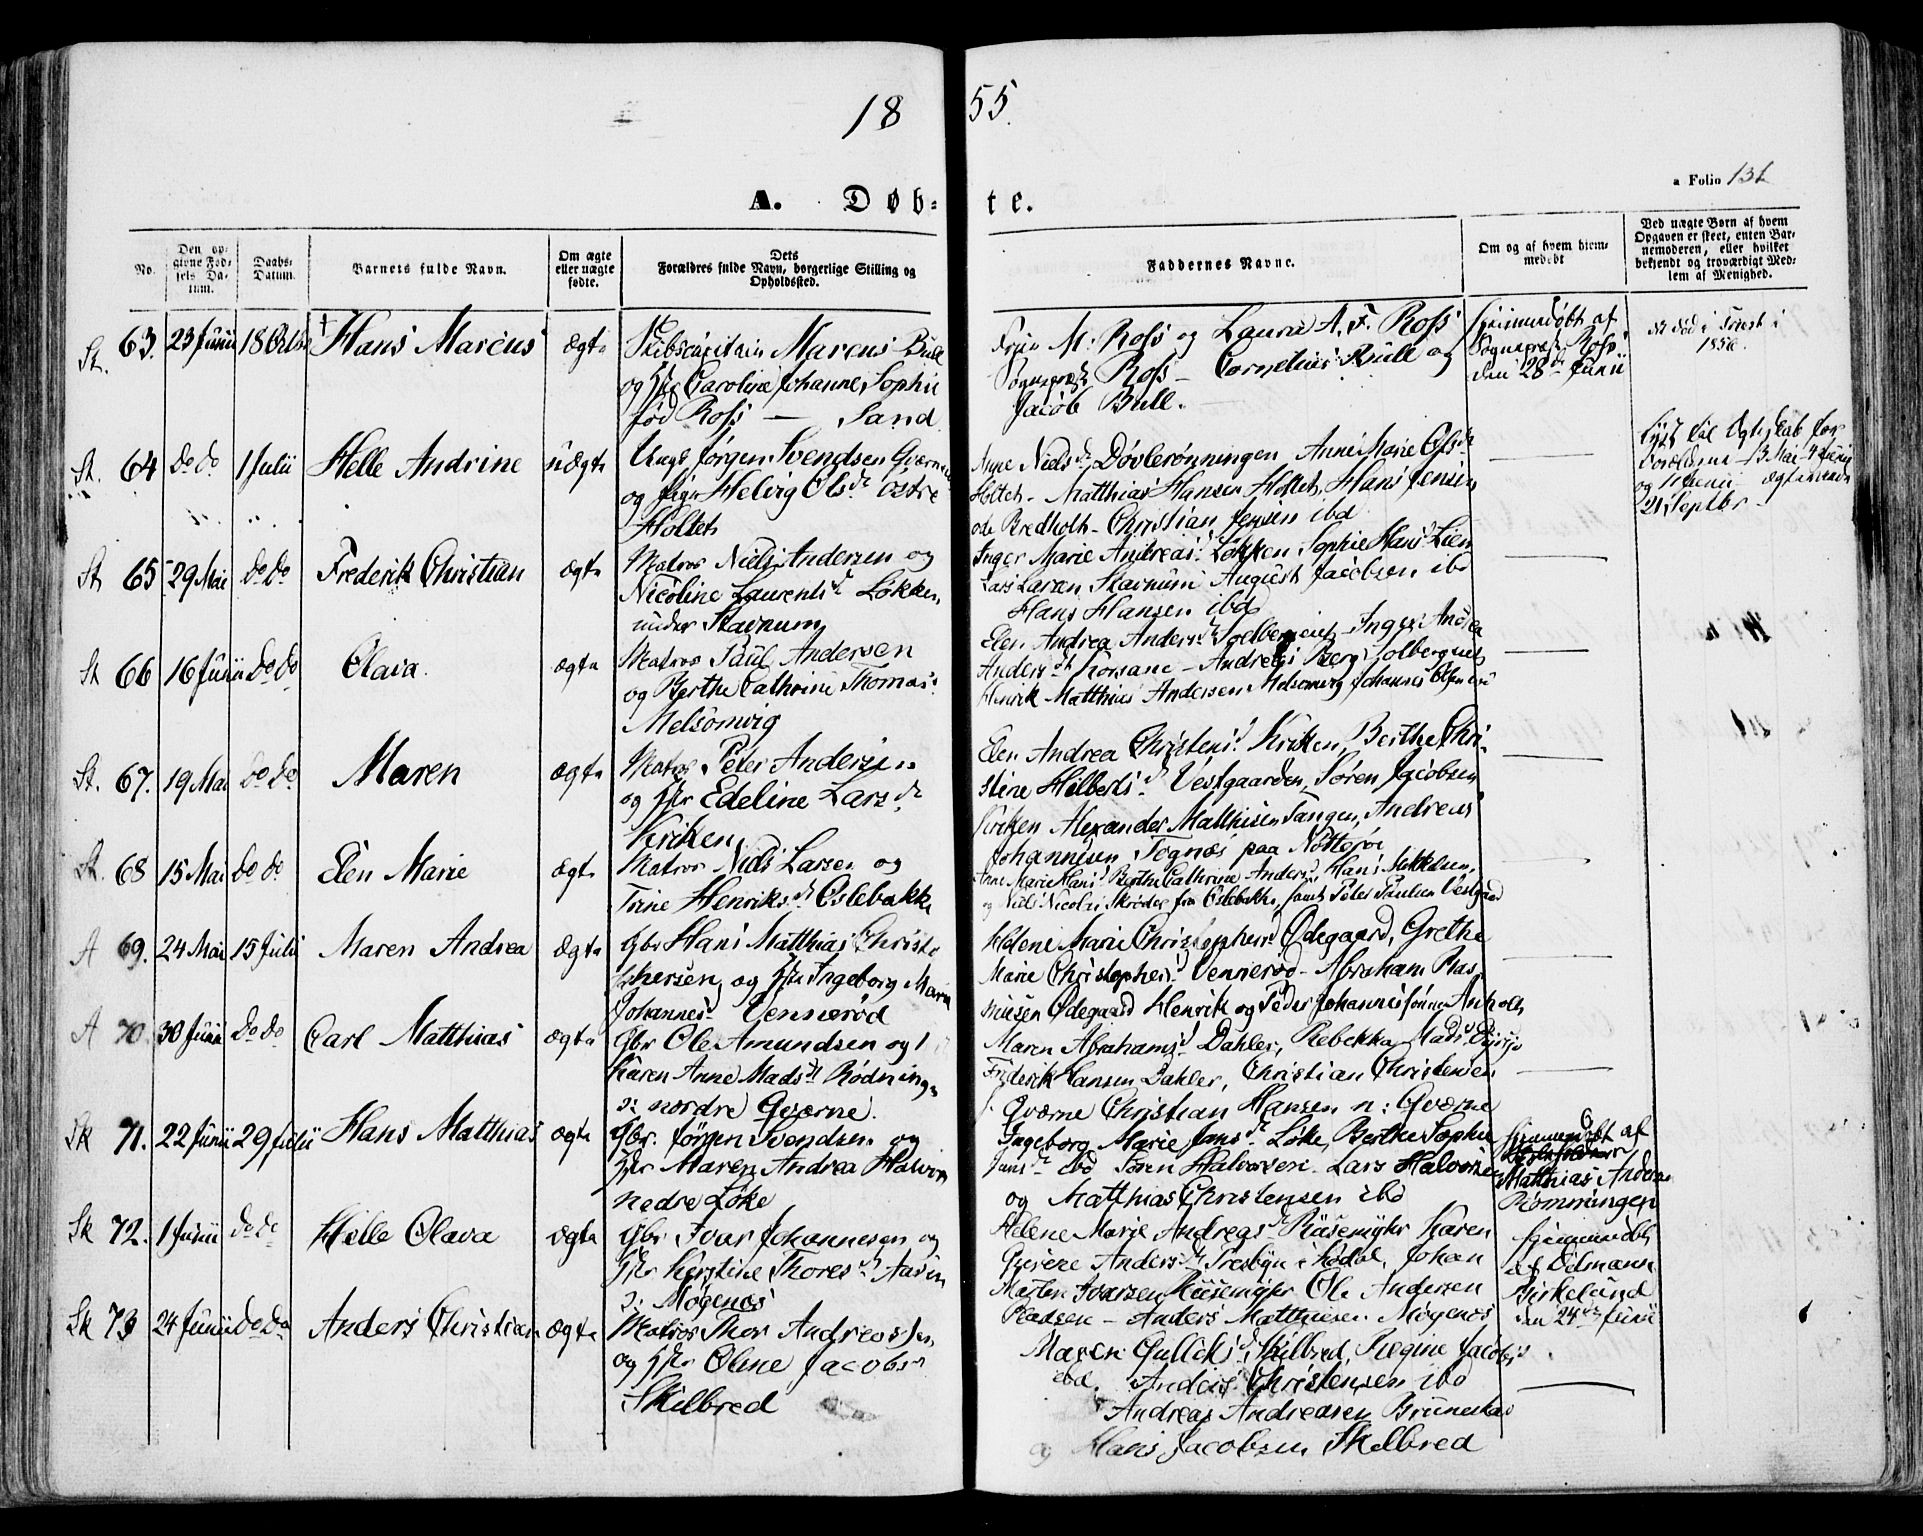 18 55.
a Folio 131
A. Døb- te.
No.
Den op-
givne Fød-
sels Da-
tum.
Daabs-
Datum.
Barnets fulde Navn.
Om ægte
eller uægte
fødte.
Dets
Forældres fulde Navn, borgerlige Stilling og
Opholdssted.
Faddernes Navne.
Om og af hvem hjem-
medøbt
Ved uægte Børn af hvem
Opgaven er skeet, enten Bar-
nemoderen, eller hvilket
bekjendt og troværdigt Med-
lem af Menighed.
St. 63. 23 Junii 18 Octbr Hans Marcus ægte
Skibscapitain Marcus Bull
og Hst Caroline Johanne Sophie
fød Ross — Sand
M. Ross og Laura A. F. Ross
Sognepræst Ross — Cornelius Bull og
Jacob Bull.
Hjemmedøbt af
Sognepræst Ross
den 28de Junii
død i Triest i
1856.
St. 64 do do 1 Julii Helle Andrine uægte
Ungk Jørgen Svendsen Qværne
og Pige Helvig Olsdr østre
Holtet
Anne Nielsdr Døvlerønningen Anne Marie Olsdr
Holtet - Matthias Hansen Holtet, Hans Jensen
Bredholt - Christian Jensen ibd
lyst til Ægteskab for
Forældrene 13 Mai - 4 Junii
og 11 Junii — ægteviede
21 Septbr
St 65 29 Mai do do Frederik Christian ægte
Matros Niels Andersen og
Nicoline Laurentsdr Løkken
under Stavnum
Inger Marie Andreasd Løkken, Sophie Hansd Lien
Lars Larsen Stavnum August Jacobsen ibd
Hans Hansen ibd
St 66 16 Junii do do Olava. ægte
Matros Paul Andersen
og Berthe Cathrine Thomasd
Melsomvig
Elen Andrea Andersd Solbergeiet - Inger Andrea
Andersdr Korsane - Andreas Berg Solbergeiet
Henrik Matthias Andersen Melsomvig Johannes Olsen ibd
St. 67. 19 Mai do do Maren ægte
Matros Peter Andersen
og Hst Edeline Larsdr
Kriken
Elen Andrea Christensd Kriken, Berthe Chri-
stine Hilbertsd Vestgaarden, Søren Jacobsen
Kriken Alexander Matthisen Tangen, Andreas
Johannesen Tognæs paa Nøtterøe
St. 68 15 Mai do do Elen Marie ægte
Matros Niels Larsen og
Trine Henriksd Oslebakke
Anne Marie Hansd Berthe Cathrine Andersd Hans Mikkelsen
og Niels Nicolai Skrøder fra Oslebakke, samt Peter Paulsen Vestgaard
A 69. 24 Mai 15 Julii Maren Andrea ægte
Gbr Hans Matthias Christo
phersen og Hst Ingeborg Marie
Johannesd Vennerød
Helene Marie Christophersd Ødegaard, Grethe
Marie Christophersd Vennerød - Abraham Ras-
mussen Ødegaard Henrik og Peder Johannissønner Anholt
A 70. 30 Junii do do Carl Matthias ægte
Gbr Ole Amundsen og
Karen Anne Madsdr Rødningen
nordre Qværne.
Maren Abrahamsd Dahler, Rebekka Madsd
Frederik Hansen Dahler, Christian Christensen
Qværne Christian Hansen n: Qværne
Sk 71. 22 Junii 29 Julii Hans Matthias ægte
Gbr. Jørgen Svendsen og
Hst Maren Andrea Halvorsd
nedre Løke
Ingeborg Marie Jansdr Løke, Berthe Sophie
Jansdr ibd Søren Halvorsen Lars Halvorsen
og Matthias Christensen ibd
Hjemmedøbt af
Matthias Anders
Rømmingen
Sk 72. 1 Junii do do Helle Olava ægte
Gbr Ivar Johannesen og
Hst Kirstine Thoresdr Aasen
Møgenæs
Helene Marie Andreasdr Kusemyhr Karen
Andersdr Presbye i Hødal, Johan
Martin Ivarsen Kusemyhr Ole Andersen
Pladsen - Anders Matthiesen Møgenæs
Hjemmedøbt
af Dilmann
Birkelund
den 24de Junii
Sk 73 24 Junii do do Anders Christian ægte
Matros Thor Andreasen
og Hst Oline Jacobsd
Skilbred
Maren Gullikd Skilbred, Regine Jacobsd
ibd. Anders Christensen ibd
Andreas Andreasen
og Hans Jacobsen Skilbred